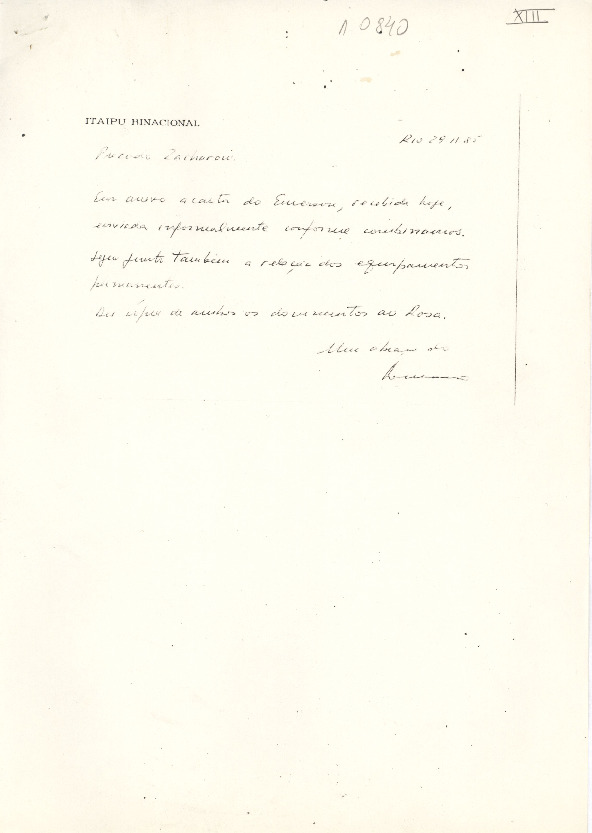 XIII
10840
ITAIPU BINACIONAL
Rio 29.11.85
Zacharias
Em anexo a carta do Emerson, recebida hoje,
enviada informalmente conforme combinamos.
Segue junto também a relação dos equipamentos
permanentes.
Dei cópia de ambos os documentos ao Rosa.
Um abraço do